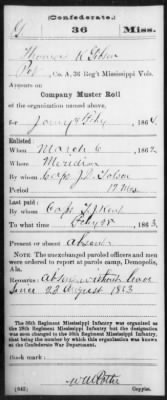 (Confederate.)
G 36 Miss.
Thomas W
Pvt, Co. A, 36 Reg't Mississippi Vols.
Appears on
Company Muster Roll
of the organization named above,
for Jany & Feby, 1864.
Enlisted:
When March 6, 1862.
Where Meridian
By whom Capt J. D.
Period
Last paid:
By whom Capt
To what time Feby 28, 1863.
Present or absent Absent
NOTE: The unexchanged paroled officers and men were ordered to report at parole camp, Demopolis, Ala.
Remarks: Absent without leave
since 23 August 1863
The 36th Regiment Mississippi Infantry was organized as
the 28th Regiment Mississippi Infantry but the designation
was soon changed to the 36th Regiment Mississippi Infantry,
that being the number by which this organization was known
at the Confederate War Department.
Book mark:
(642) Copyist.